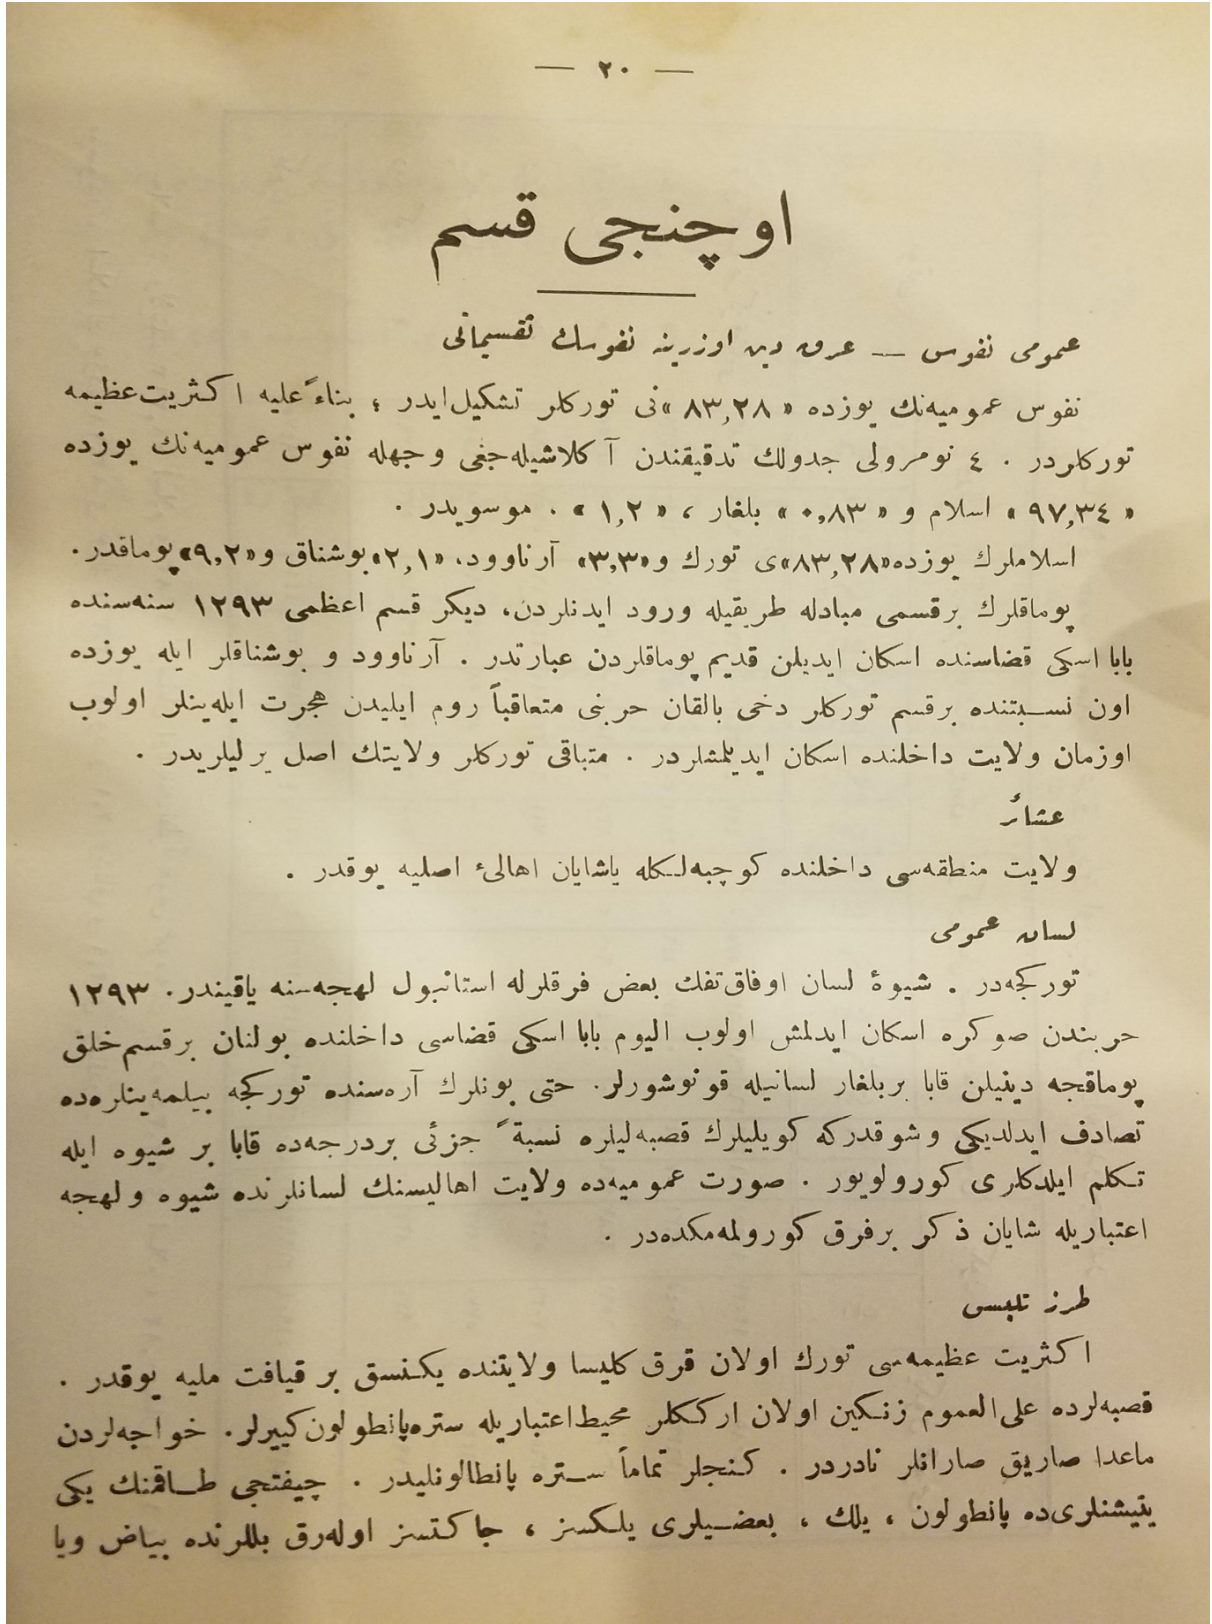 — ٢٠ —
اوچنجی قسم
عمومی نفوس — عرق دین اوزرینه نفوسك تقسیماتی
نفوس عمومیه‌نك یوزده «٨٣,٢٨» نی تورکلر تشکیل ایدر ؛ بناءً علیه اکثریت عظیمه
تورکلردر . ٤ نومرولی جدولك تدقیقندن آکلاشیله‌جغی وجهله نفوس عمومیه‌نك یوزده
«٩٧,٣٤» اسلام و «٠,٨٣» بلغار ، «١,٢» . موسویدر .
اسلاملرك یوزده«٨٣,٢٨»ی تورك و«٣,٣» آرناوود، «٢,١»بوشناق و«٩,٢»پوماقدر.
پوماقلرك برقسمی مبادله طریقیله ورود ایدنلردن، دیکر قسم اعظمی ١٢٩٣ سنه‌سنده
بابا اسکی قضاسنده اسکان ایدیلن قدیم پوماقلردن عبارتدر . آرناوود و بوشناقلر ایله یوزده
اون نسبتنده برقسم تورکلر دخی بالقان حربنی متعاقباً روم ایلیدن هجرت ایله‌ینلر اولوب
اوزمان ولایت داخلنده اسکان ایدیلمشلردر . متباقی تورکلر ولایتك اصل یرلیلریدر .
عشائر
ولایت منطقه‌سی داخلنده کوچبه‌لکله یاشایان اهالیٔ اصلیه یوقدر .
لسان عمومی
تورکجه‌در . شیوۀ لسان اوفاق‌تفك بعض فرقلرله استانبول لهجه‌سنه یاقیندر. ١٢٩٣
حربندن صوکره اسکان ایدلمش اولوب الیوم بابا اسکی قضاسی داخلنده بولنان برقسم خلق
پوماقجه دینیلن قابا بربلغار لسانیله قونوشورلر. حتی بونلرك آره‌سنده تورکجه بیلمه‌ینلره‌ده
تصادف ایدلدیکی وشوقدرکه کویلیلرك قصبه‌لیلره نسبةً جزئی بردرجه‌ده قابا بر شیوه ایله
تکلم ایلدکلری کورولویور . صورت عمومیه‌ده ولایت اهالیسنك لسانلرنده شیوه ولهجه
اعتباریله شایان ذکر برفرق کورولمه‌مکده‌در .
طرز تلبس
اکثریت عظیمه‌سی تورك اولان قرق کلیسا ولایتنده یکنسق بر قیافت ملیه یوقدر .
قصبه‌لرده علی‌العموم زنکین اولان ارککلر محیط‌اعتباریله ستره‌پانطولون‌کییرلر. خواجه‌لردن
ماعدا صاریق صارانلر نادردر . کنجلر تماماً ستره پانطالونلیدر . چیفتجی طاقمنك یکی
یتیشنلری‌ده پانطولون ، یلك ، بعضیلری یلکسز ، جاکتسز اوله‌رق بللرنده بیاض ویا